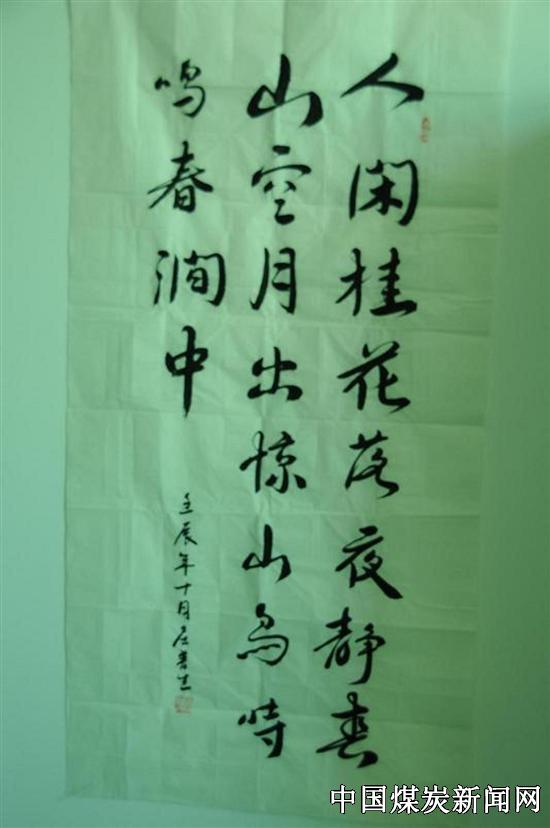 人闲桂花落夜静春
山空月出惊山鸟時
鸣春涧中
壬辰年十月
中国煤炭新闻网